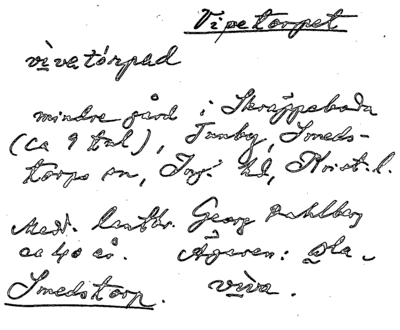 Vipetorpet
vìvatórpad
mindre gård i Skräppeboda
(ca 9 tnl), Tunby, Smeds-
torps sn, Ing. hd, Krist. l.
Medd. lantbr. Georg Dahlberg
ca 40 år. Ägaren: Ola
vìva.
Smedstorp.